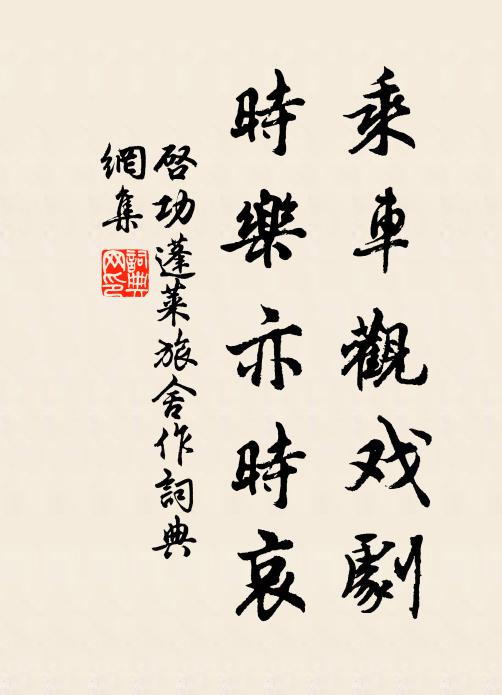 乘車觀戏劇
時樂亦時哀
啓功蓬萊旅舍作詞典
網集
詞典网印